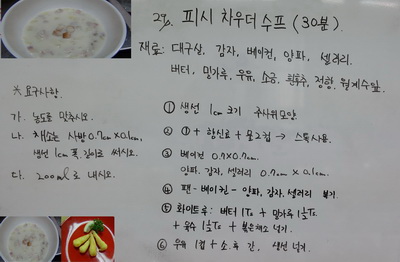 29. 피시 차우더 수프 (30분).
재료: 대구살, 감자, 베이컨, 양파, 셀러리.
버터, 밀가루, 우유, 소금, 흰후추, 정향, 월계수잎
※ 요구사항.
가. 농도를 맞추시오.
나. 채소는 사방 0.7cm×0.1cm,
생선 1cm 폭, 길이로 써시오.
다. 200ml로 내시오.
① 생선 1cm 크기 주사위모양
② ①+ 향신료 + 물2컵 → 스톡사용.
③ 베이컨 0.7×0.7cm.
양파, 감자, 셀러리 0.7cm × 0.1cm
④ 팬-베이컨-양파, 감자, 셀러리 볶기.
⑤ 화이트루: 버터 1Ts + 밀가루 1½Ts
+ 육수 1½Ts + 볶은채소 넣기
⑥ 우유 1컵 + 소.후 간, 생선 넣기.